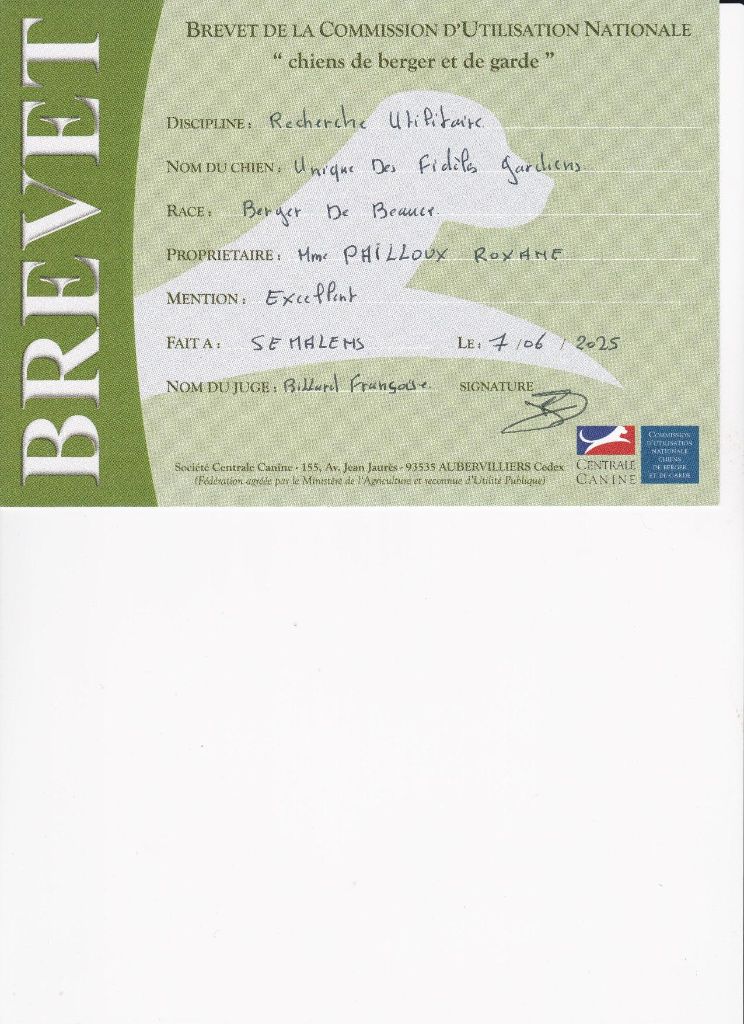 BREVET
BREVET DE LA COMMISSION D'UTILISATION NATIONALE
“ chiens de berger et de garde ”
DISCIPLINE : Recherche Utilitaire
NOM DU CHIEN : Unique Des Fidèles gardiens
RACE : Berger De Beauce
PROPRIETAIRE : Mme PAILLOUX ROXANE
MENTION : Excellent
FAIT A : SEMALENS LE : 7 / 06 / 2025
NOM DU JUGE : Billard Françoise SIGNATURE
Société Centrale Canine - 155, Av. Jean Jaurès - 93535 AUBERVILLIERS Cedex
(Fédération agréée par le Ministère de l'Agriculture et reconnue d'Utilité Publique)
CENTRALE
CANINE
COMMISSION
D'UTILISATION
NATIONALE
CHIENS
DE BERGER
ET DE GARDE